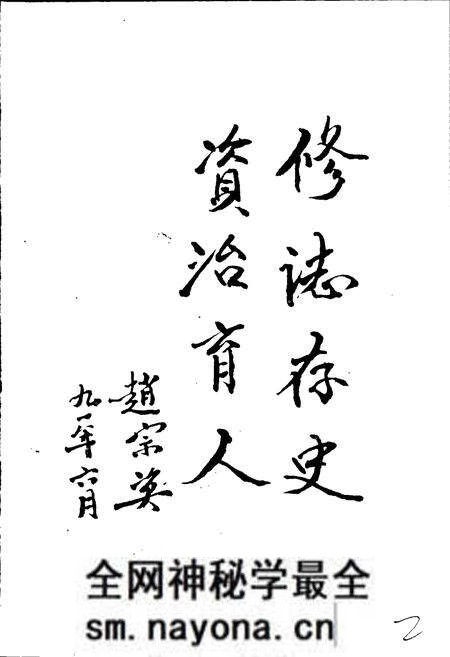 修誌存史
資治育人
趙宗英
九一年六月
全网神秘学最全
sm.nayona.cn